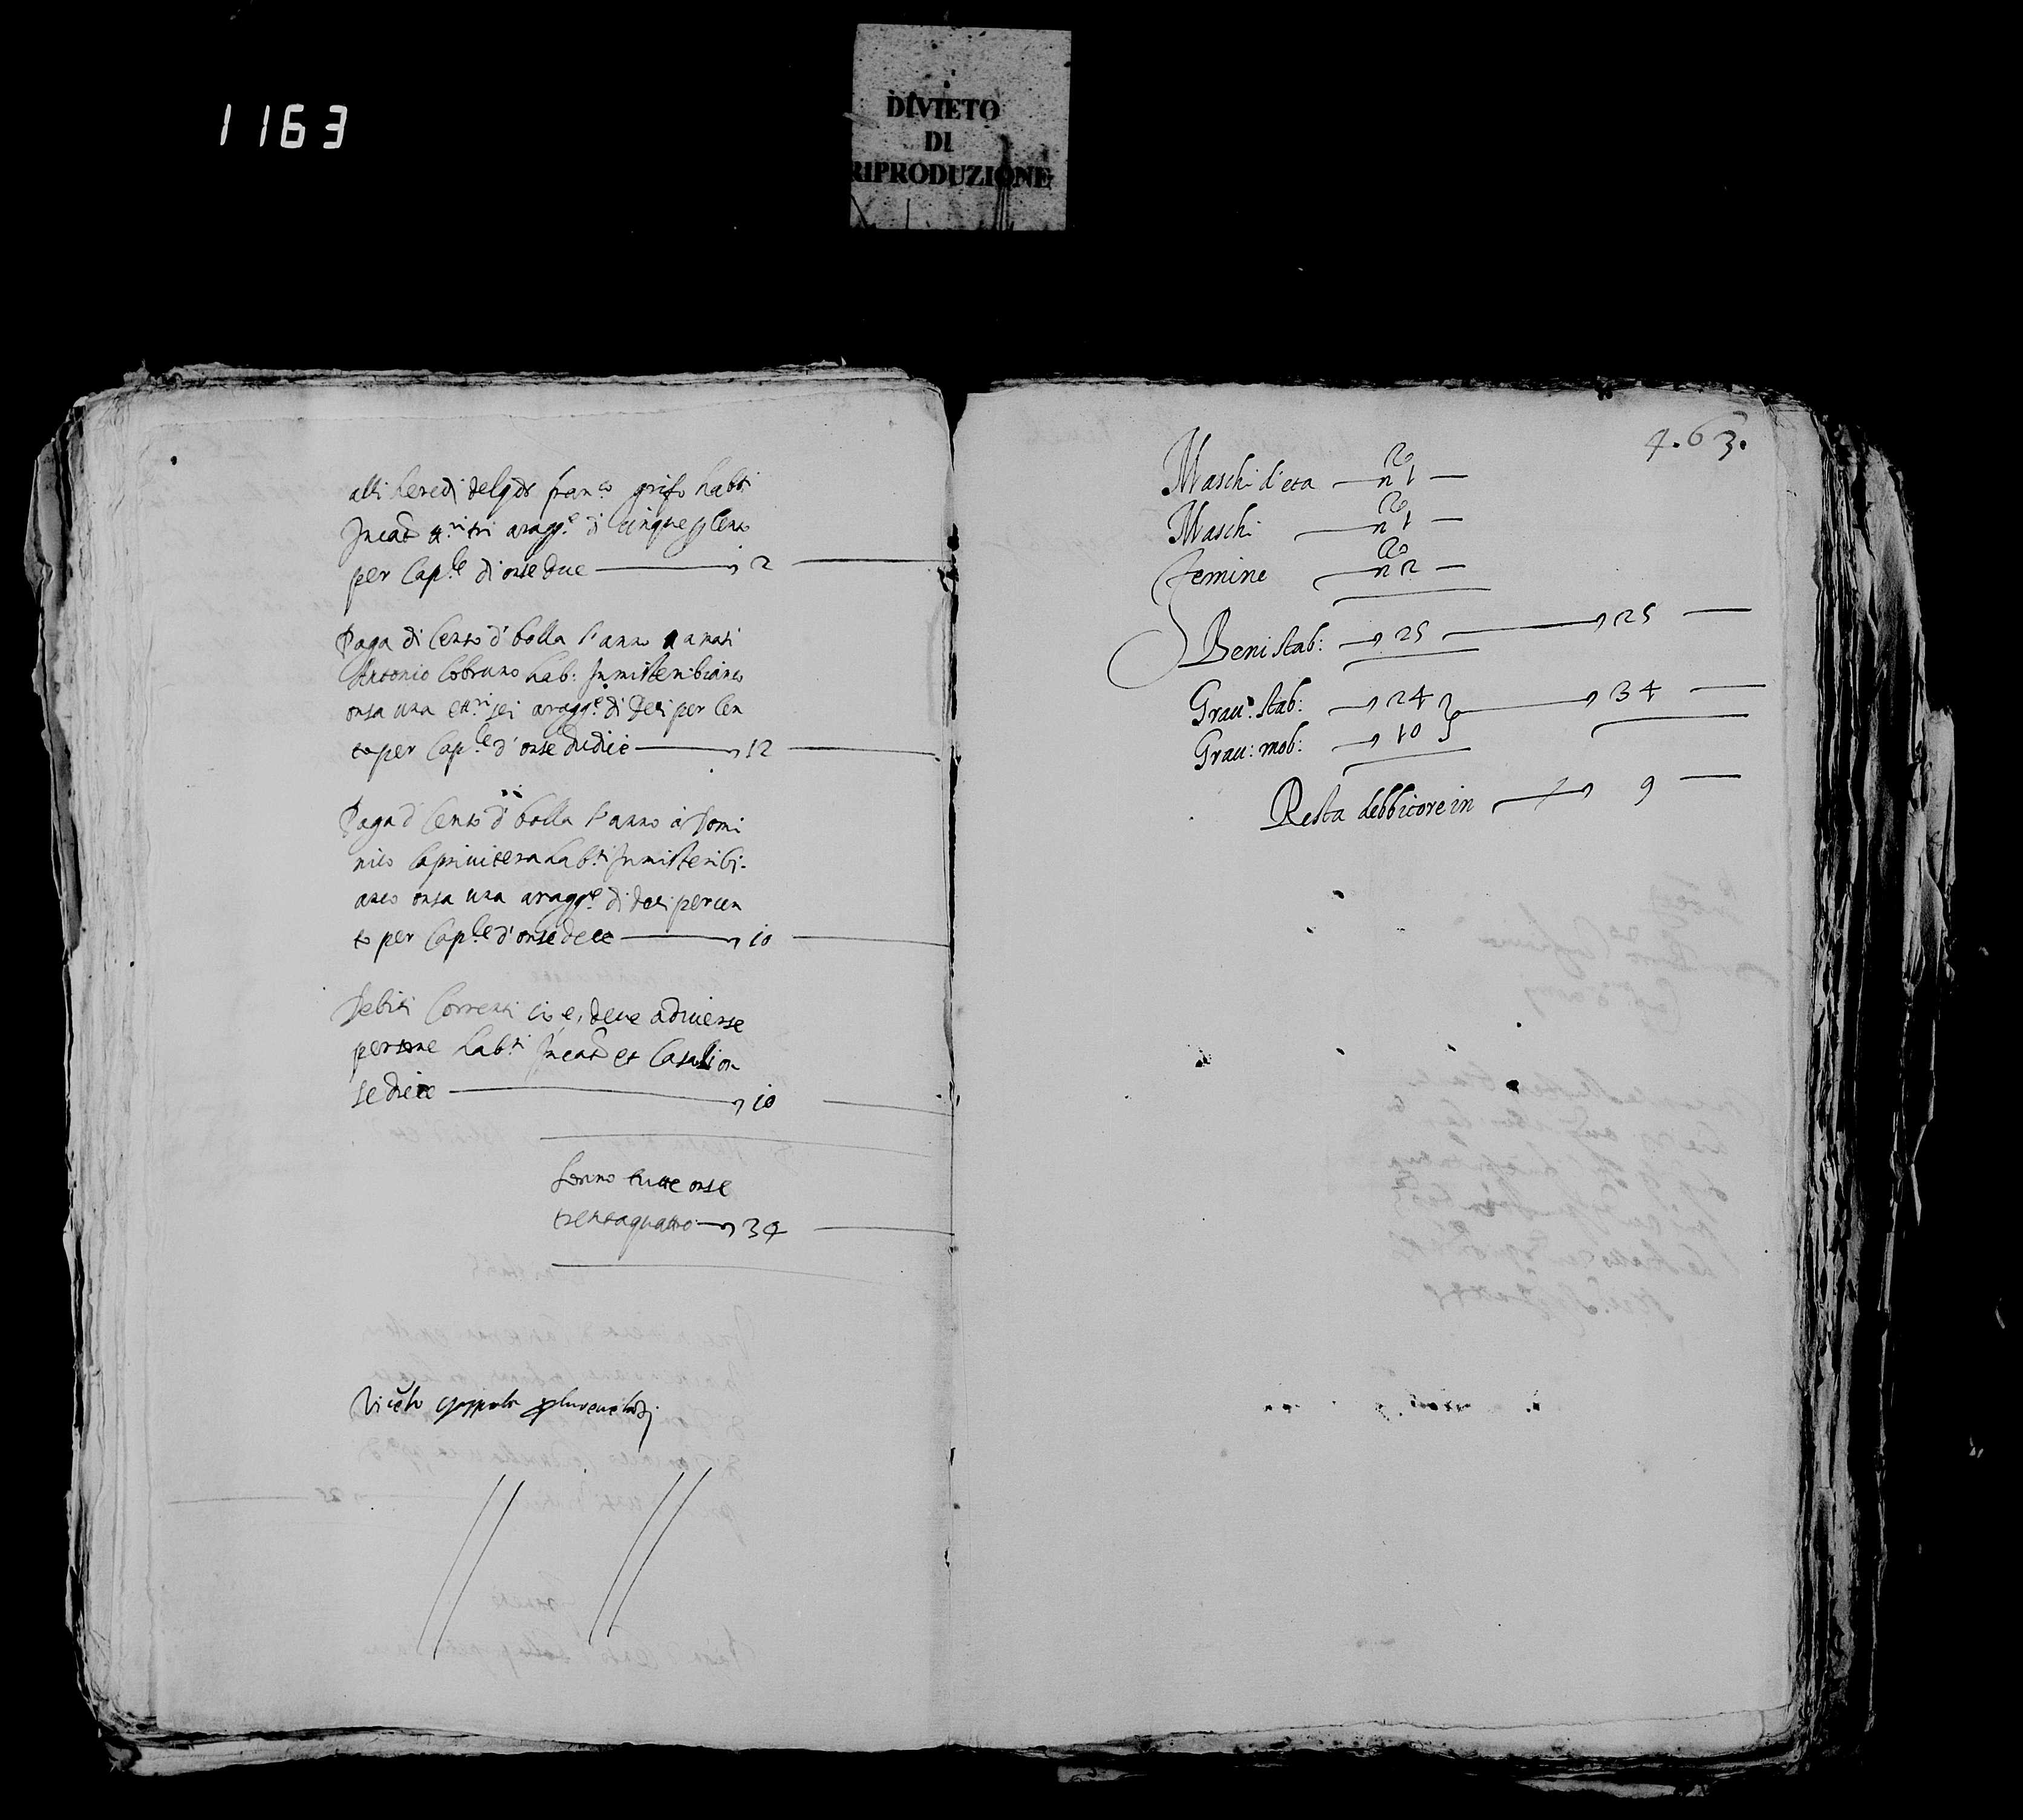 1163
DIVIETO
DI
RIPRODUZIONE
alli heredi del qdm fran.co grifo habti
Incat.a tri aragg.e di cinque p cento
per Cap.le di onse due 2
Paga di Censo d' bolla l'anno a
Antonio Cobruno hab: In misteribianco
onsa una et tri sei aragg.e di deci per cen
to per Cap.le d' onse dudici 12
Paga d' Censo d' bolla l'anno a Domi
nico Caprivitera hab.ti In misteribi-
anco onsa una aragg.e di deci per cen
to per Cap.le d' onse dece 10
Debiti Correnti cio e, deve a diverse
persone hab.ti In cat.a et Casali on
se diece 10
Sonno tutte onse
trentaquattro 34
4.63.
Maschi d'eta n.o 1
Maschi n.o 1
Femine n.o 2
Beni stab: 25 25
Grau: stab: 24 34
Grau: mob: 10
Resta debbitore in 9